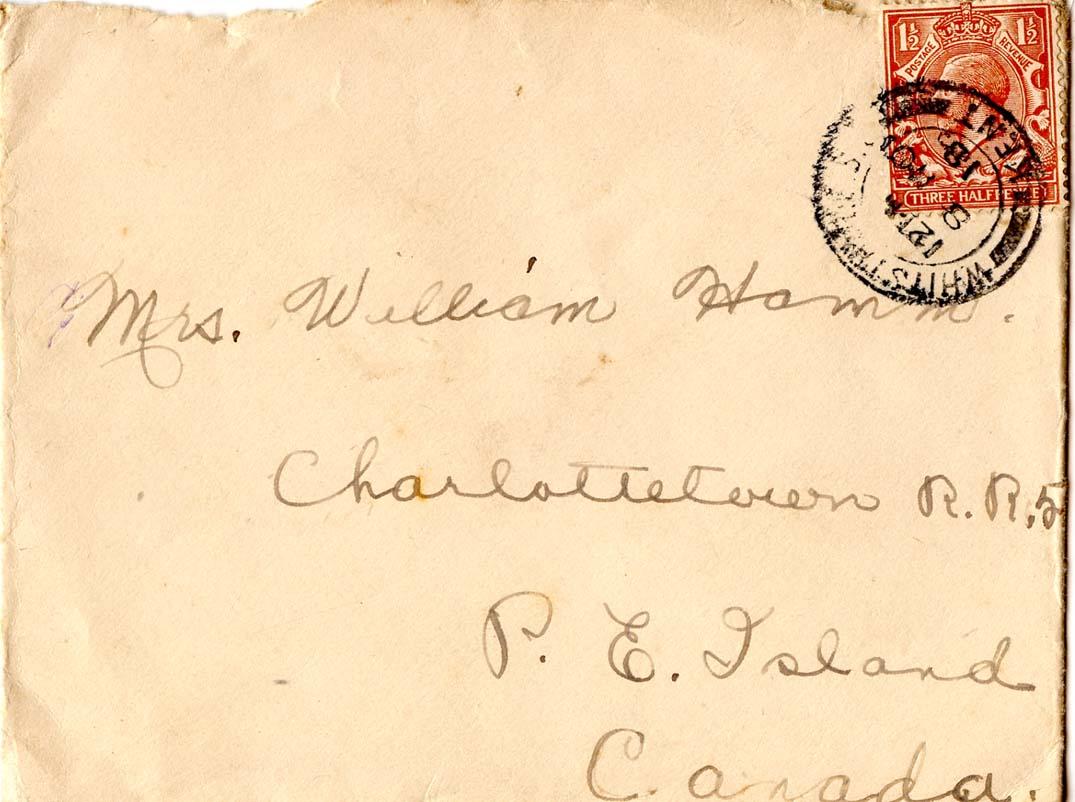 1½ 1½
POSTAGE REVENUE
THREE HALFPENCE
WHITSTABLE
KENT
8 NOV
18
Mrs. William Hamm.
Charlottetown R.R.5
P. E. Island
Canada.